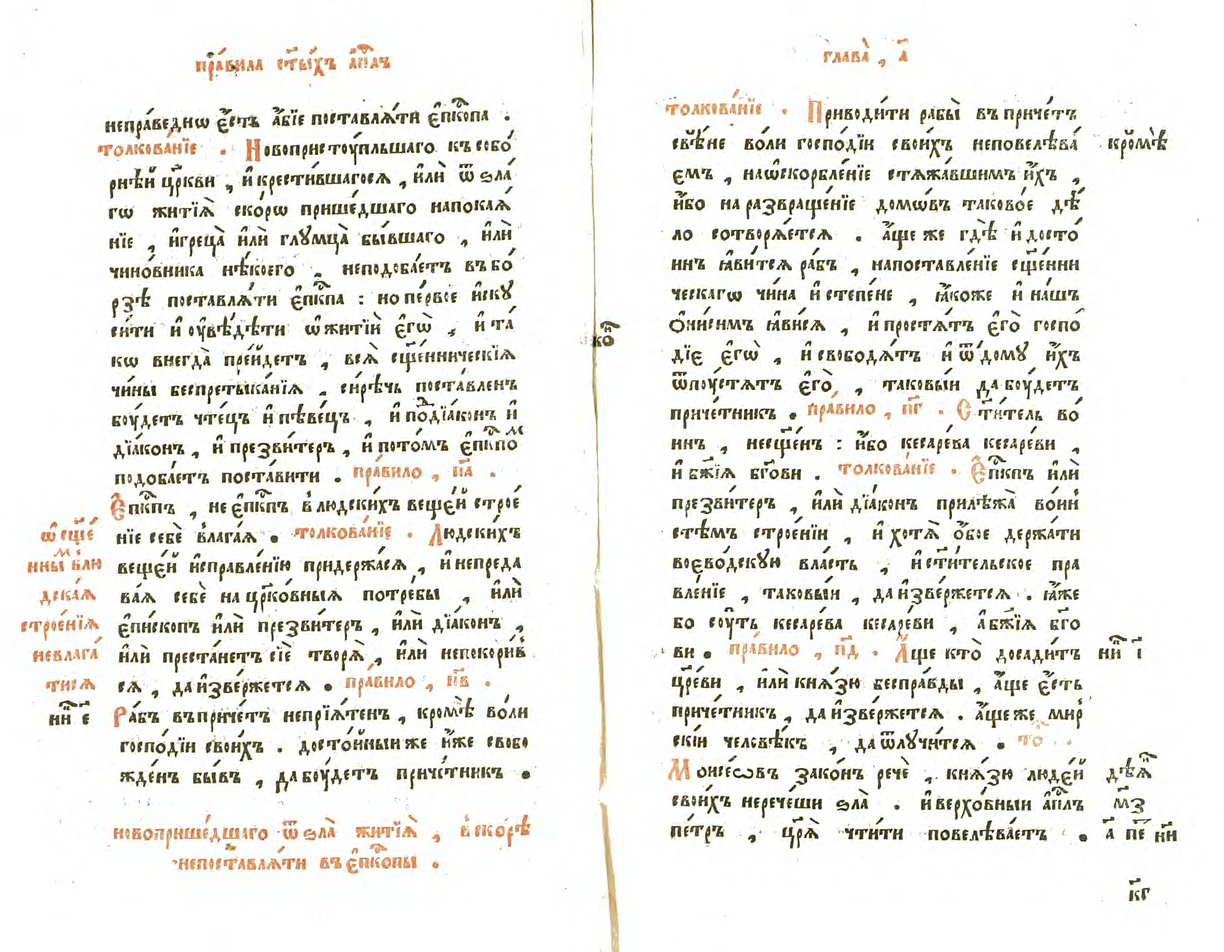 пра́вила ст҃ы́хъ а҆пⷭ҇лъ
непра́веднѡ є҆́сть а҆́бїе поставлѧ́ти є҆пⷭ҇кпа .
толкова́нїе . Новопристоу́пльшаго къ собо́
рнѣ́й цр҃кви , и҆ крести́вшагосѧ , и҆лѝ ѿ ѕла́
гѡ житїѧ̀ ско́рѡ прише́дшаго напокаѧ́
нїе , и҆греца̀ и҆лѝ глꙋмца̀ бы́вшаго , и҆лѝ
чино́вника нѣ́коего , неподоба́етъ въ бо́
рзѣ поставлѧ́ти є҆пⷭ҇кпа : но пе́рвое и҆скꙋ
си́ти и҆ оу҆вѣ́дѣти ѡ҆ житїѝ є҆гѡ̀ , и҆ та́
кѡ внегда̀ пре́йдетъ , всѧ̀ сщ҃е́нническїѧ
чи́ны беспретыка́нїѧ , си́рѣчь поста́вленъ
боу́детъ чте́цъ и҆ пѣве́цъ , и҆ под̾ дїа́конъ и҆
дїа́конъ , и҆ презви́теръ , и҆ пото́мъ є҆пⷭ҇кпомъ
подоба́етъ поста́вити . пра́вило , п҃а .
Є҆пⷭ҇кпъ , не є҆пⷭ҇кпъ в людски́хъ веще́й строе́
нїе себѐ влага́ѧ . толкова́нїе . Людски́хъ
веще́й и҆справле́нїю придержа́сѧ , и҆ непреда
ва́ѧ себѐ на цр҃ко́вныѧ потре́бы , и҆лѝ
є҆пи́скопъ и҆лѝ презви́теръ , и҆лѝ дїа́конъ ,
и҆лѝ преста́нетъ сїѐ творѧ̀ , и҆лѝ непокори́в
сѧ , да и҆зве́ржетсѧ . пра́вило , п҃в .
Ра́бъ въ приче́тъ непрїѧ́тенъ , кромѣ̀ во́ли
госпо́дїи свои́хъ . досто́йныи же и҆́же свобо
жде́нъ бы́въ , да боу́детъ приче́тникъ .
ѡ҆ сщ҃е́
ннымъ в лю
дска́ѧ
строе́нїѧ
невлага́
тисѧ
ни҃ и҆ е҃
новоприше́дшаго ѿ ѕла̀ житїѧ̀ , в ско́рѣ
непоставлѧ́ти въ є҆пⷭ҇кпы .
глава̀ , а҃
толкова́нїе . Приводи́ти рабы̀ въ приче́тъ
свѣ́не во́ли госпо́дїи свои́хъ неповелѣва́
емъ , на ѡ҆скорбле́нїе стѧжа́вшимъ и҆́хъ ,
и҆́бо на развраще́нїе домѡ́въ таково́е дѣ́
ло сотворѧ́етсѧ . а҆́ще же гдѣ̀ и҆ досто́
инъ ꙗ҆ви́тсѧ ра́бъ , на поставле́нїе сщ҃е́нни
ческагѡ чи́на и҆ степе́не , ꙗ҆́коже и҆ на́шъ
Ѻ҆ни́симъ ꙗ҆ви́сѧ , и҆ простѧ́тъ є҆го̀ госпо́
дїе є҆гѡ̀ , и҆ свободѧ́тъ и҆ ѿ до́мꙋ и҆́хъ
ѿпоу́стѧтъ є҆го̀ , таковы́и да боу́детъ
приче́тникъ . пра́вило , п҃г . Ст҃и́тель во́
инъ , несщ҃е́нъ : и҆́бо ке́сарева ке́сареви ,
и҆ бж҃їѧ бг҃ови . толкова́нїе . Є҆пⷭ҇кпъ и҆лѝ
презви́теръ , и҆лѝ дїа́конъ прилѣжа̀ во́ин
стѣмъ строе́нїи , и҆ хотѧ̀ ѻ҆бо́е держа́ти
воево́дскꙋю вла́сть , и҆ ст҃и́тельское пра
вле́нїе , таковы́и , да и҆зве́ржетсѧ . ꙗ҆́же
бо соу́ть ке́сарева ке́сареви , а҆ бж҃їѧ бг҃о
ви . пра́вило , п҃д . А҆́ще кто̀ досади́тъ
цр҃е́ви , и҆лѝ кнѧ́зю беспра́вды , а҆́ще є҆́сть
приче́тникъ , да и҆зве́ржетсѧ . а҆́ще же мир
скі́и человѣ́къ , да ѿлꙋчи́тсѧ . то .
Моисе́ѡвъ зако́нъ речѐ , кнѧ́зю люде́й
свои́хъ нерече́ши ѕла̀ . и҆ верхо́вныи а҆пⷭ҇лъ
пе́тръ , цр҃ѧ̀ чти́ти повелѣва́етъ .
кромѣ̀
ни҃ и҆ і҃
дѣѧ҃
м҃з
а҃ пе҃ ни҃
к҃г